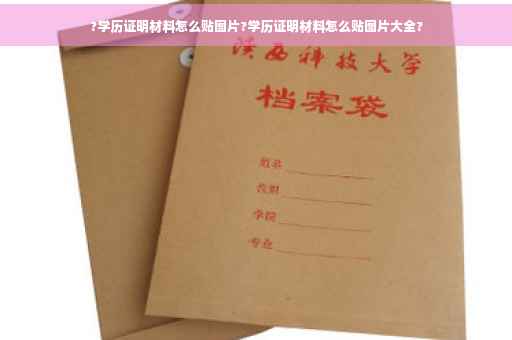 ?学历证明材料怎么贴图片?学历证明材料怎么贴图片大全?
陕西科技大学
档案袋
姓名
学院
专业